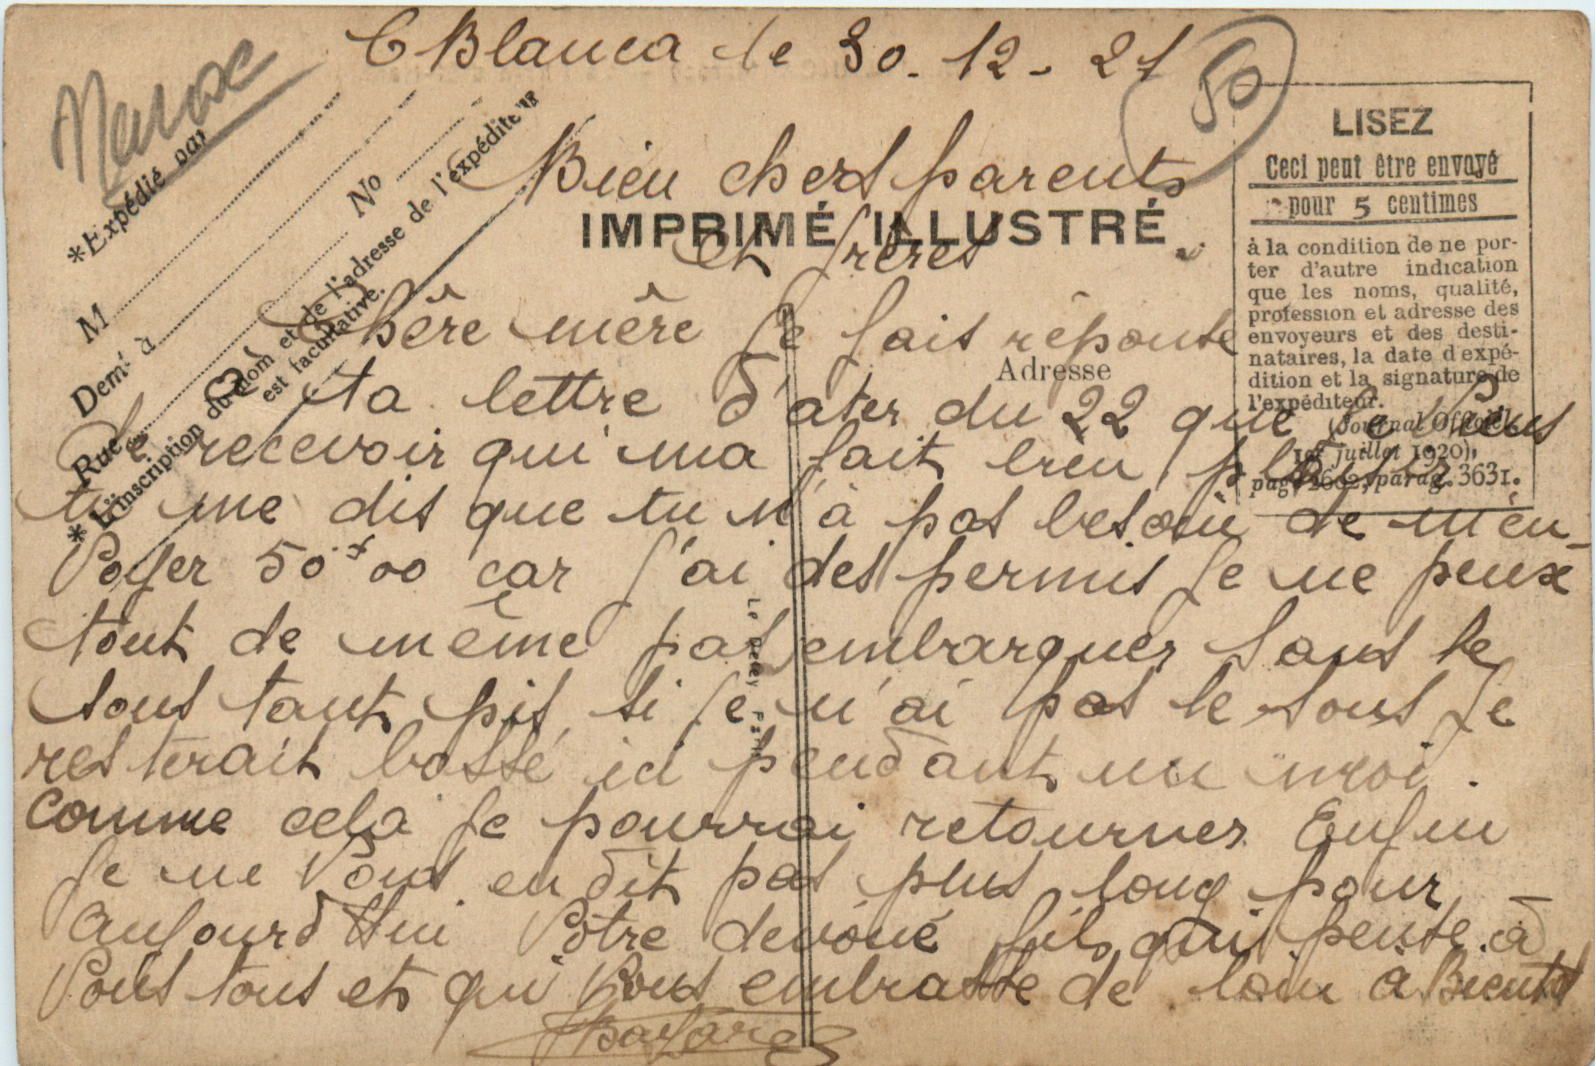 Maroc
C Blanca le 30. 12 - 21
50
Bien chers parents
et freres
Chêre mêre Je fais reponse
à ta lettre d'ater du 22 que Je Viens
de recevoir qui ma fait bien plaisir
tu me dis que tu n'à pas besoin de m'en-
Voyer 50f00 car J'ai des permis Je ne peux
tout de même pas embarquer sans le
sous tant pis si Je n'ai pas le sous Je
resterait ici pendant un moi.
Comme cela Je pourrai retourner Enfin
Je ne Vous en dit pas plus long pour
aujourd Hui Vôtre devoué fils qui pense à
Vous tous et qui Vous embrasse de loin à Bientot
*Expédié par
M
No
Demt à
Rue
* L'inscription du nom et de l'adresse de l'expéditeur
est facultative.
IMPRIMÉ ILLUSTRÉ
Adresse
LISEZ
Ceci peut être envoyé
pour 5 centimes
à la condition de ne por-
ter d'autre indication
que les noms, qualité,
profession et adresse des
envoyeurs et des desti-
nataires, la date d'expé-
dition et la signature de
l'expéditeur.
(Journal Officiel,
1er juillet 1920),
parag. 3631.
Le Deley Paris